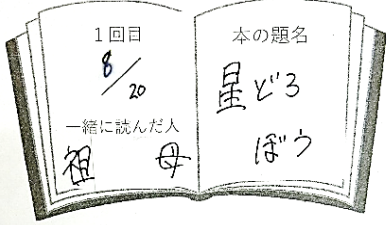 1回目
8/20
一緒に読んだ人
祖 母
本の題名
星どろ
ぼう